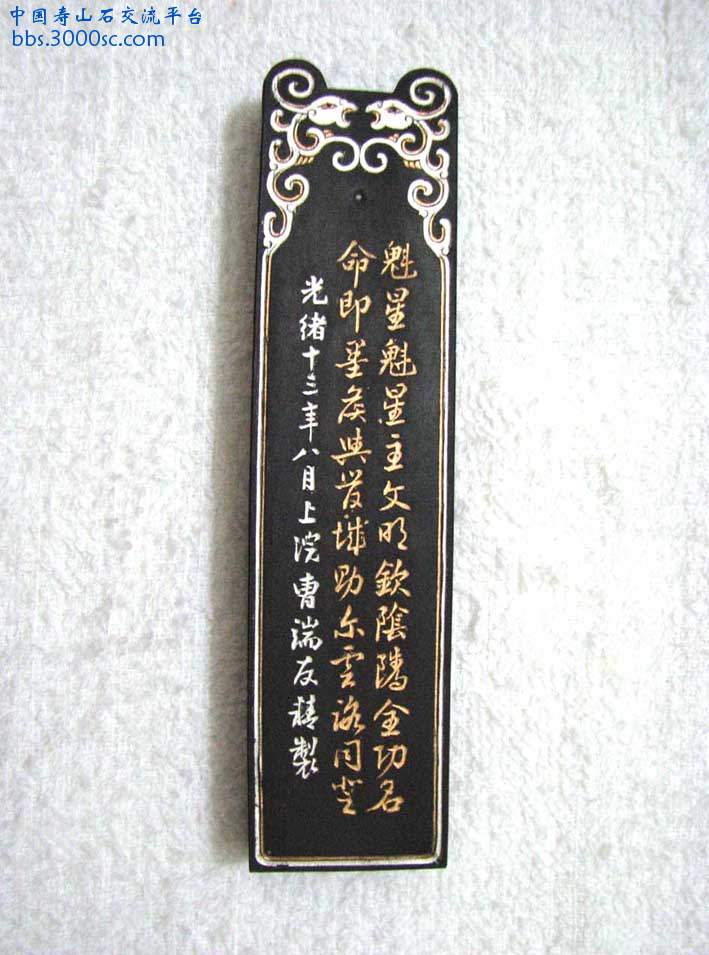 中国寿山石交流平台
bbs.3000sc.com
魁星魁星主文明欽陰騭全功名
命即墨矦與管城助尔雲路同登
光緒十三年八月上浣曹端友精製